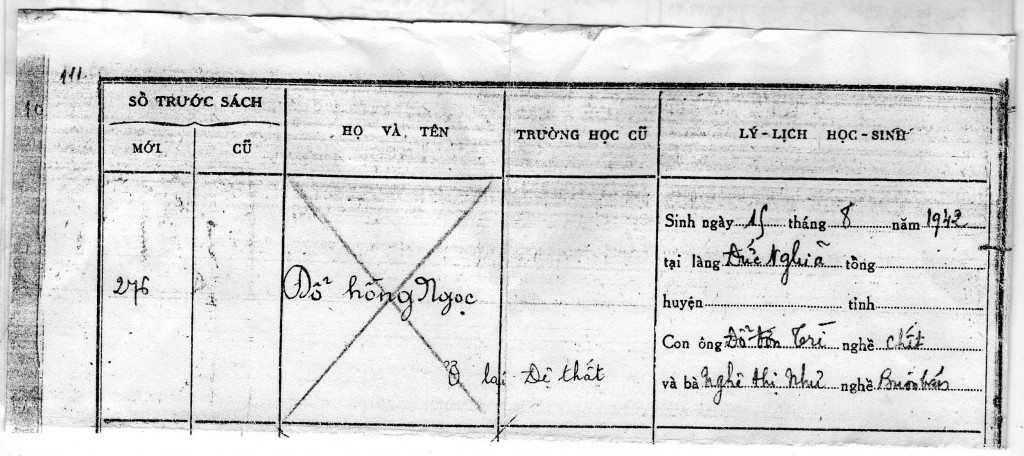 111.
10
SỐ TRƯỚC SÁCH
MỚI CŨ
HỌ VÀ TÊN
TRƯỜNG HỌC CŨ
LÝ-LỊCH HỌC-SINH
276
Đỗ hồng Ngọc
Ở lại Đê thất
Sinh ngày 15 tháng 8 năm 1943
tại làng Đức Nghĩa tổng
huyện tỉnh
Con ông Đỗ Trì nghề chết
và bà Nghê thị Như nghề Buôn bán